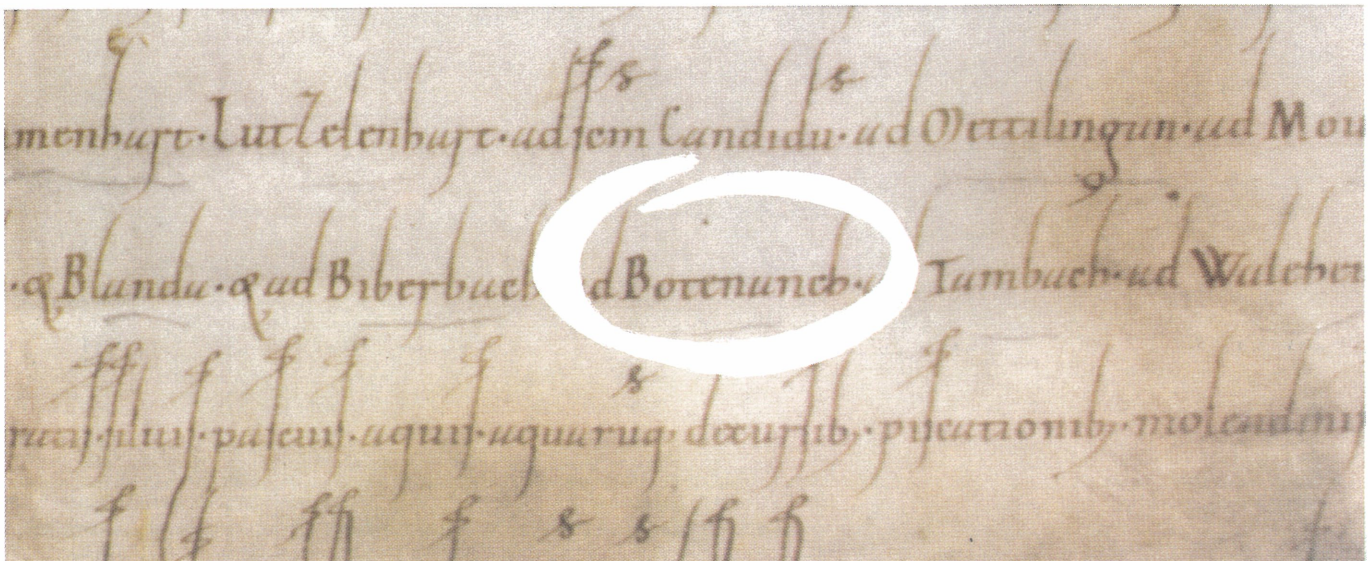 menhart · Lutzelenhart · ad sem Candidu · ad Oettilingun · ad Mou
· & Blanda · & ad Biberbach ad Botenanch · a Tambach · ad Waleher
silvis · pascuis · aquis · aquaruq; decursib; · piscationib; · molendinis